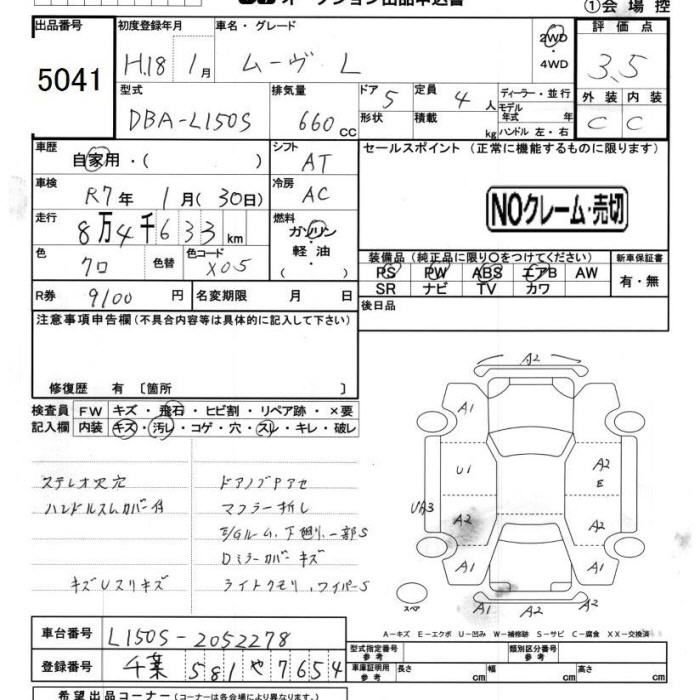 オークション出品申込書
①会場控
出品番号 初度登録年月 車名・グレード 2WD・4WD 評価点
5041 H.18 1月 ムーヴ L 3.5
型式 排気量 ドア 定員 ディーラー・並行 外装 内装
DBA-L150S 660cc 5 4人 モデル年式 年 C C
形状 積載 kg ハンドル 左・右
車歴 シフト セールスポイント (正常に機能するものに限ります)
自家用・( ) AT
車検 冷房
R7年 1月(30日) AC NOクレーム・売切
走行 燃料
8万4千633km ガソリン・軽油・( )
色 色替 色コード 装備品(純正品に限り〇をつけてください) 新車保証書
クロ X05 PS PW ABS エアB AW 有・無
SR ナビ TV カワ
R券 9100円 名変期限 月 日 後日品
注意事項申告欄(不具合内容等は具体的に記入して下さい)
修復歴 有 〔箇所 〕
検査員 FW キズ・飛石・ヒビ割・リペア跡・×要
記入欄 内装 キズ・汚レ・コゲ・穴・スレ・キレ・破レ
ステレオ欠穴 ドアノブPアセ
ハンドルスレカバー付 マフラー折し
E/Gルーム、下廻り、一部S
Dミラーカバーキズ
キズUスリキズ ライトクモリ、ワイパーS
A2
A1 A1
U1 A2 E
UA3 A2 A2
A1 A1
A1 A2
スペア
A-キズ E-エクボ U-凹み W-補修跡 S-サビ C-腐食 XX-交換済
車台番号 L150S-2052278
登録番号 千葉 581 や 7654
型式指定番号 類別区分番号
車庫証明用参考 長さ cm 幅 cm 高さ cm
希望出品コーナー(コーナーは各会場により異なります)